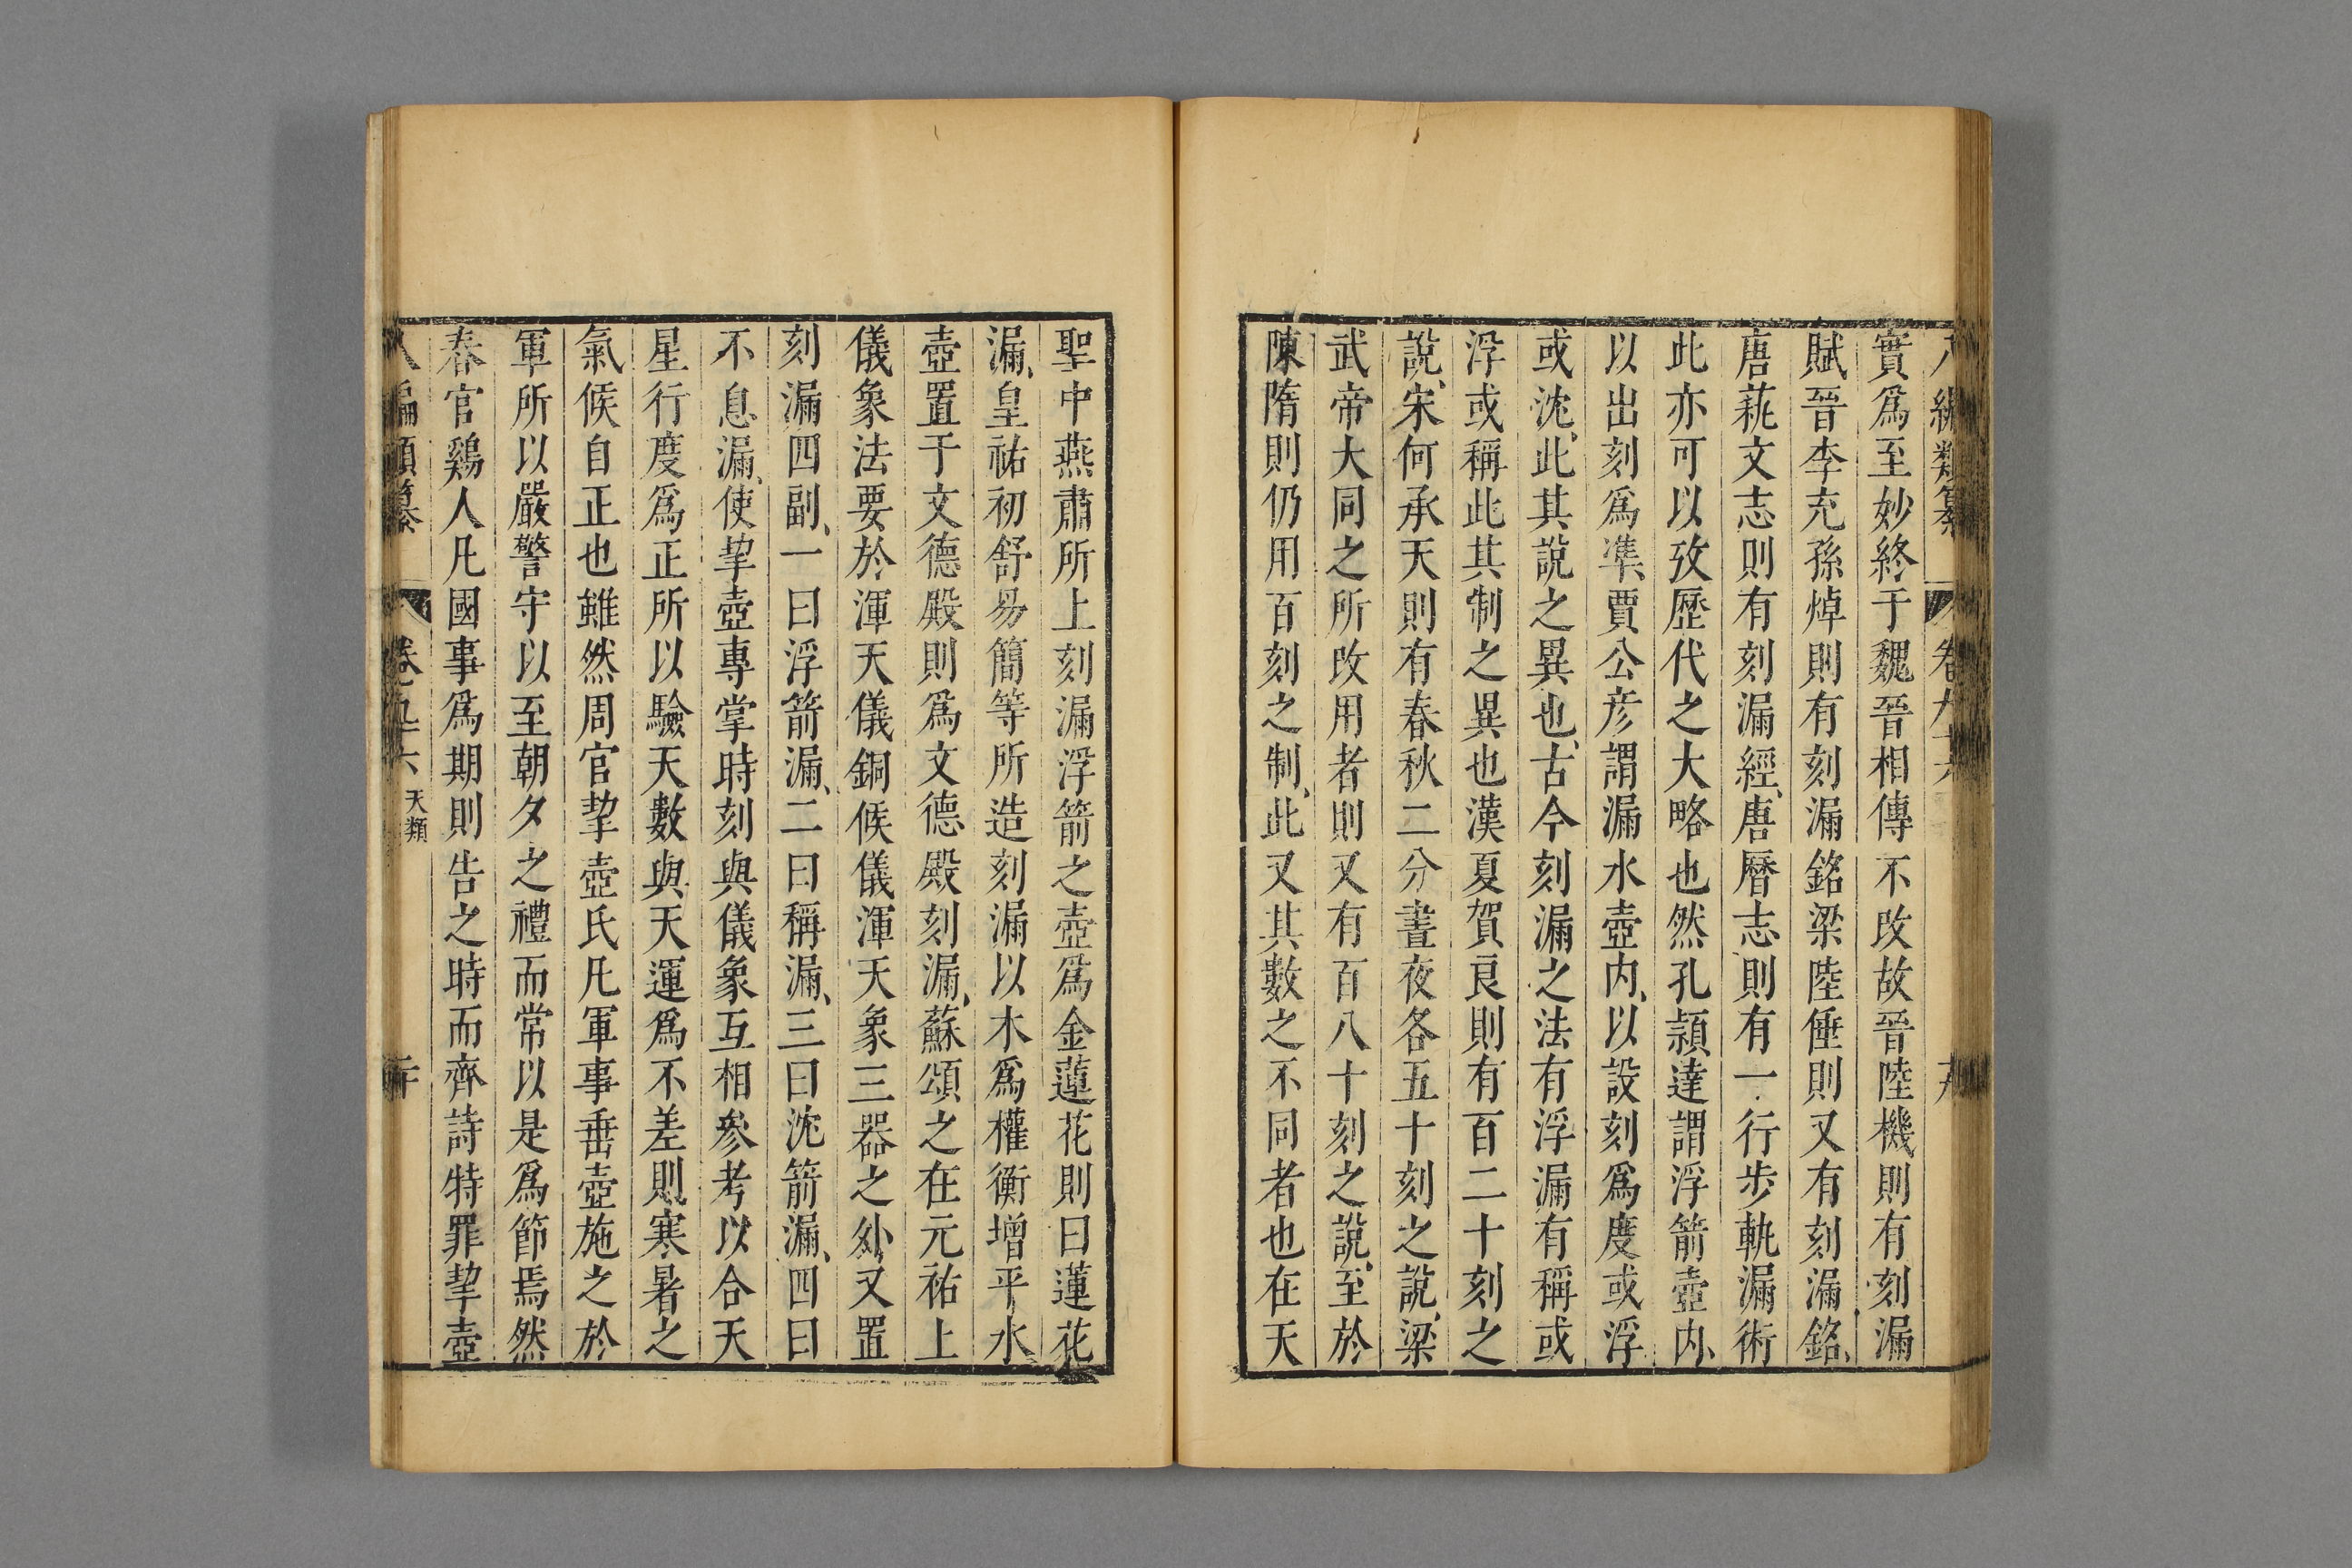 八編類纂 卷九十六 十九
實爲至妙終于魏晉相傳不改故晉陸機則有刻漏
賦晉李充孫焯則有刻漏銘梁陸倕則又有刻漏銘、
唐藝文志則有刻漏經、唐曆志則有一行步軌漏術
此亦可以攷歷代之大略也然孔頴達謂浮箭壺内、
以出刻爲準、賈公彦謂漏水壺内、以設刻爲度或浮
或沈、此其說之異也、古今刻漏之法有浮漏有稱或
浮或稱此其制之異也漢夏賀良則有百二十刻之
說、宋何承天則有春秋二分晝夜各五十刻之說、梁
武帝大同之所改用者則又有百八十刻之說、至於
陳隋則仍用百刻之制、此又其數之不同者也在天
聖中燕肅所上刻漏浮箭之壺爲金蓮花則曰蓮花
漏、皇祐初舒易簡等所造刻漏以木爲權衡增平水
壺置于文德殿則爲文德殿刻漏、蘇頌之在元祐上
儀象法要於渾天儀銅候儀渾天象三器之外又置
刻漏四副、一曰浮箭漏、二曰稱漏、三曰沈箭漏、四曰
不息漏、使挈壺專掌時刻與儀象互相參考以合天
星行度爲正所以驗天數與天運爲不差則寒暑之
氣候自正也雖然周官挈壺氏凡軍事垂壺施之於
軍所以嚴警守以至朝夕之禮而常以是爲節焉然
春官鷄人凡國事爲期則告之時而齊詩特罪挈壺
八編類纂 卷九十六 天類 二十